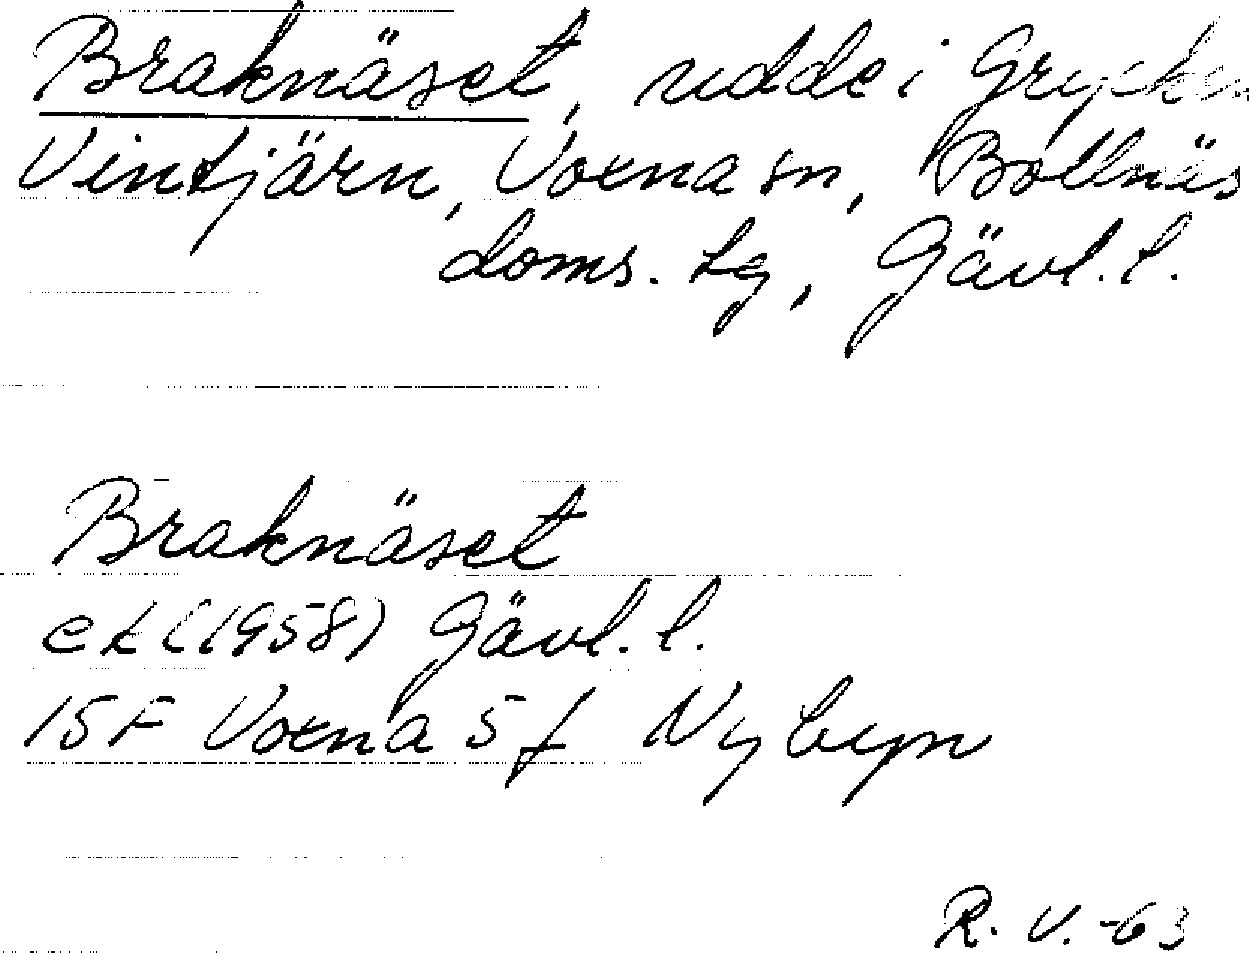 Braknäset, udde i Grycken
Vintjärn, Voxna sn, Bollnäs
doms. lg, Gävl. l.
Braknäset
ek (1958) Gävl. l.
15F Voxna 5 f Nybyn
R. V. -63